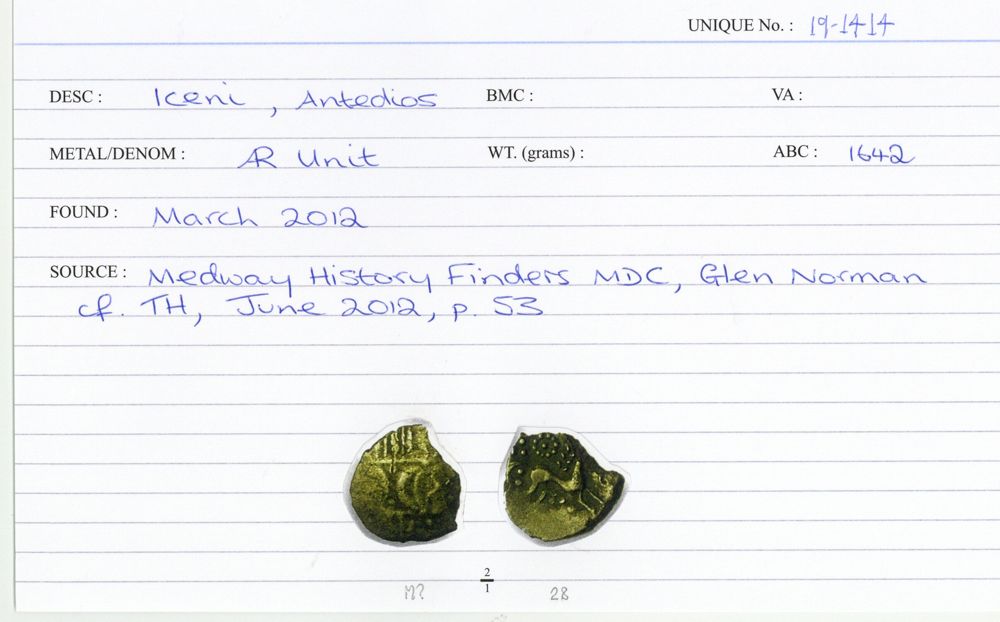 UNIQUE No. : 19-1414
DESC : Iceni, Antedios BMC : VA :
METAL/DENOM : AR Unit WT. (grams) : ABC : 1642
FOUND : March 2012
SOURCE : Medway History Finders MDC, Glen Norman
cf. TH, June 2012, p. 53
2
1
M? 28